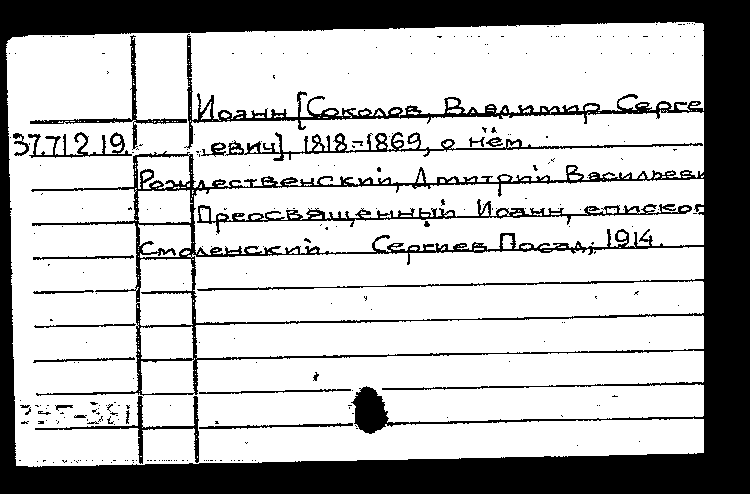 Иоанн [Соколов, Владимир Серге
37.712.19. евич], 1818-1869, о нём.
Рождественский, Дмитрий Васильеви
Преосвященный Иоанн, епископ
Смоленский. Сергиев Посад, 1914.